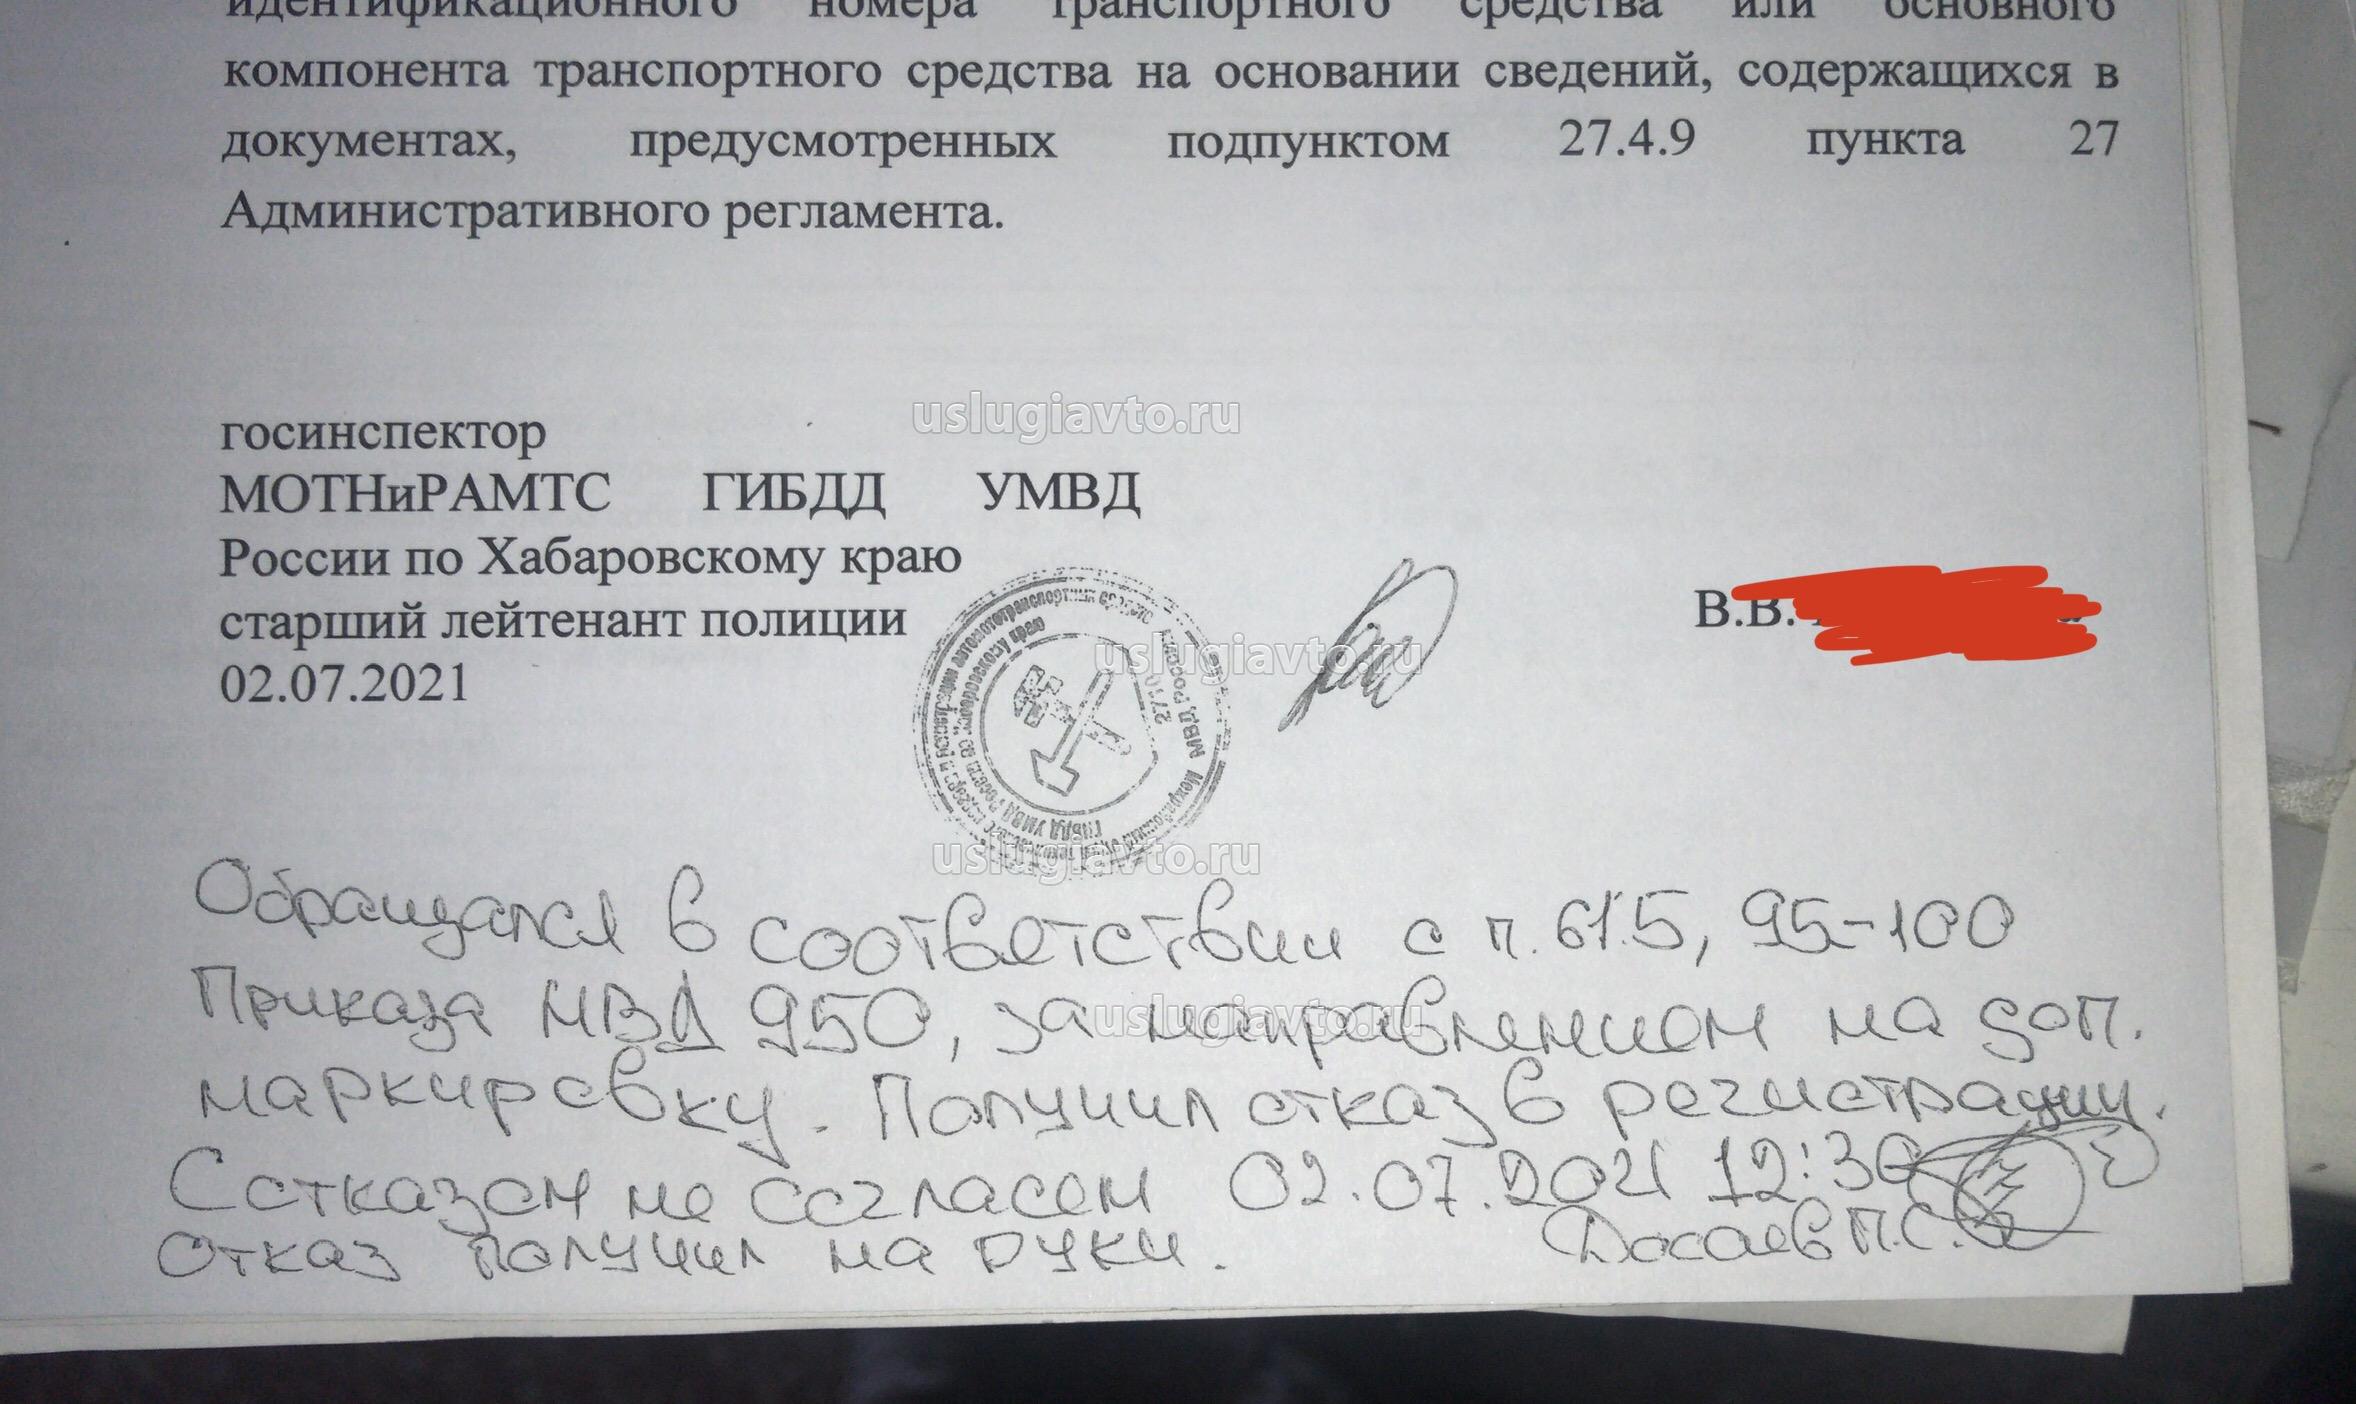 идентификационного номера транспортного средства или основного
компонента транспортного средства на основании сведений, содержащихся в
документах, предусмотренных подпунктом 27.4.9 пункта 27
Административного регламента.
uslugiavto.ru
госинспектор
МОТНиРАМТС ГИБДД УМВД
России по Хабаровскому краю
старший лейтенант полиции
В.В.
02.07.2021
uslugiavto.ru
МВД России
ГИБДД УМВД России по Хабаровскому краю
uslugiavto.ru
Обращался в соответствии с п. 61.5, 95-100
Приказа МВД 950, за направлением на доп.
uslugiavto.ru
маркировку. Получил отказ в регистрации.
С отказом не согласен 02.07.2021 12:30
Отказ получил на руки. Досаев П.С.